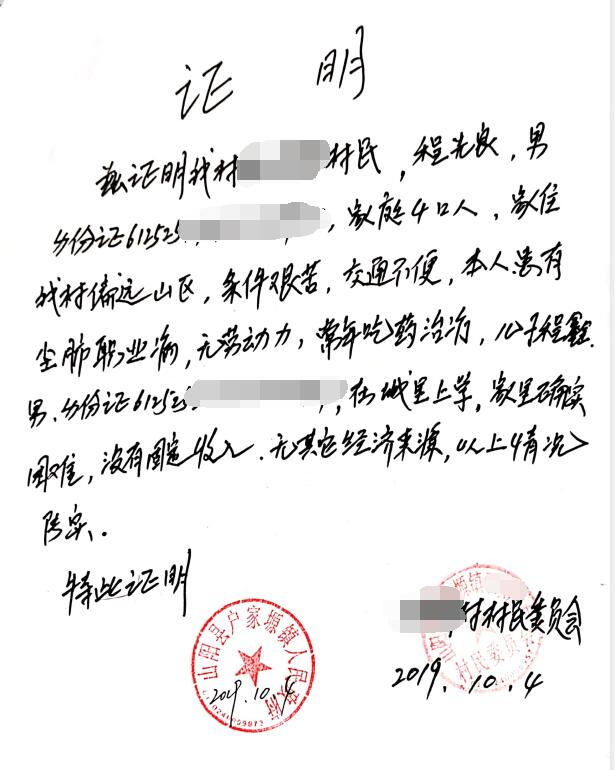 证 明
兹证明我村 村民，程先良，男
身份证612525 ，家庭4口人，家住
我村偏远山区，条件艰苦，交通不便，本人患有
尘肺职业病，无劳动力，常年吃药治疗，儿子程鑫
男、身份证612525 ，在城里上学，家里确实
困难，没有固定收入．无其它经济来源，以上情况
属实．
特此证明
村村民委员会
2019．10．4
山阳县户家塬镇人民政府
2019.10.4
塬镇
村民委员